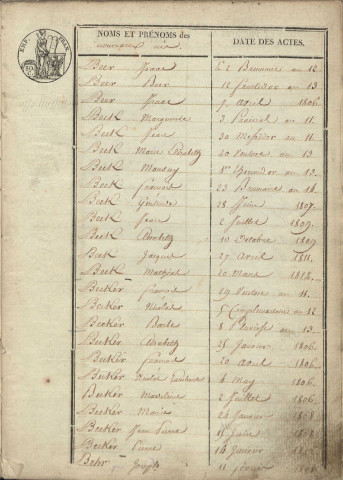 EMP. FRAN.
NOMS ET PRÉNOMS des
DATE DES ACTES.
Beer Isaac 22 Brumaire an 12
Beer Beer 12 fructidor an 13
Beer Isaac 7 avril 1806
Beck Marguerite 3 Prairial an 11.
Beck Jean 30 Messidor an 11.
Beck Marie Elisabeth 20 Ventose an 13
Beck an 13.
Beck françois 23 Brumaire an 14
Beck Gertrude 28 1807.
Beck Jean 2 Juillet 1809.
Beck Elisabeth 10 Octobre 1809
Beck Jacques 27 Avril 1811.
Beck Mathias 20 Mars 1812.
Becker françois 29 Ventose an 11.
Becker Nicolas 5 Complémentaire an 12
Becker Barbe 8 Pluviose an 13.
Becker Elisabeth 25 Janvier 1806.
Becker françois 20 Avril 1806
Becker Nicolas 6 May 1806.
Becker Madeleine 2 Juillet 1806.
Becker Marie 26 Janvier 1808.
Becker Jean Pierre 15 Juin 1808.
Becker Pierre 16 Janvier
Behr Joseph 11 février